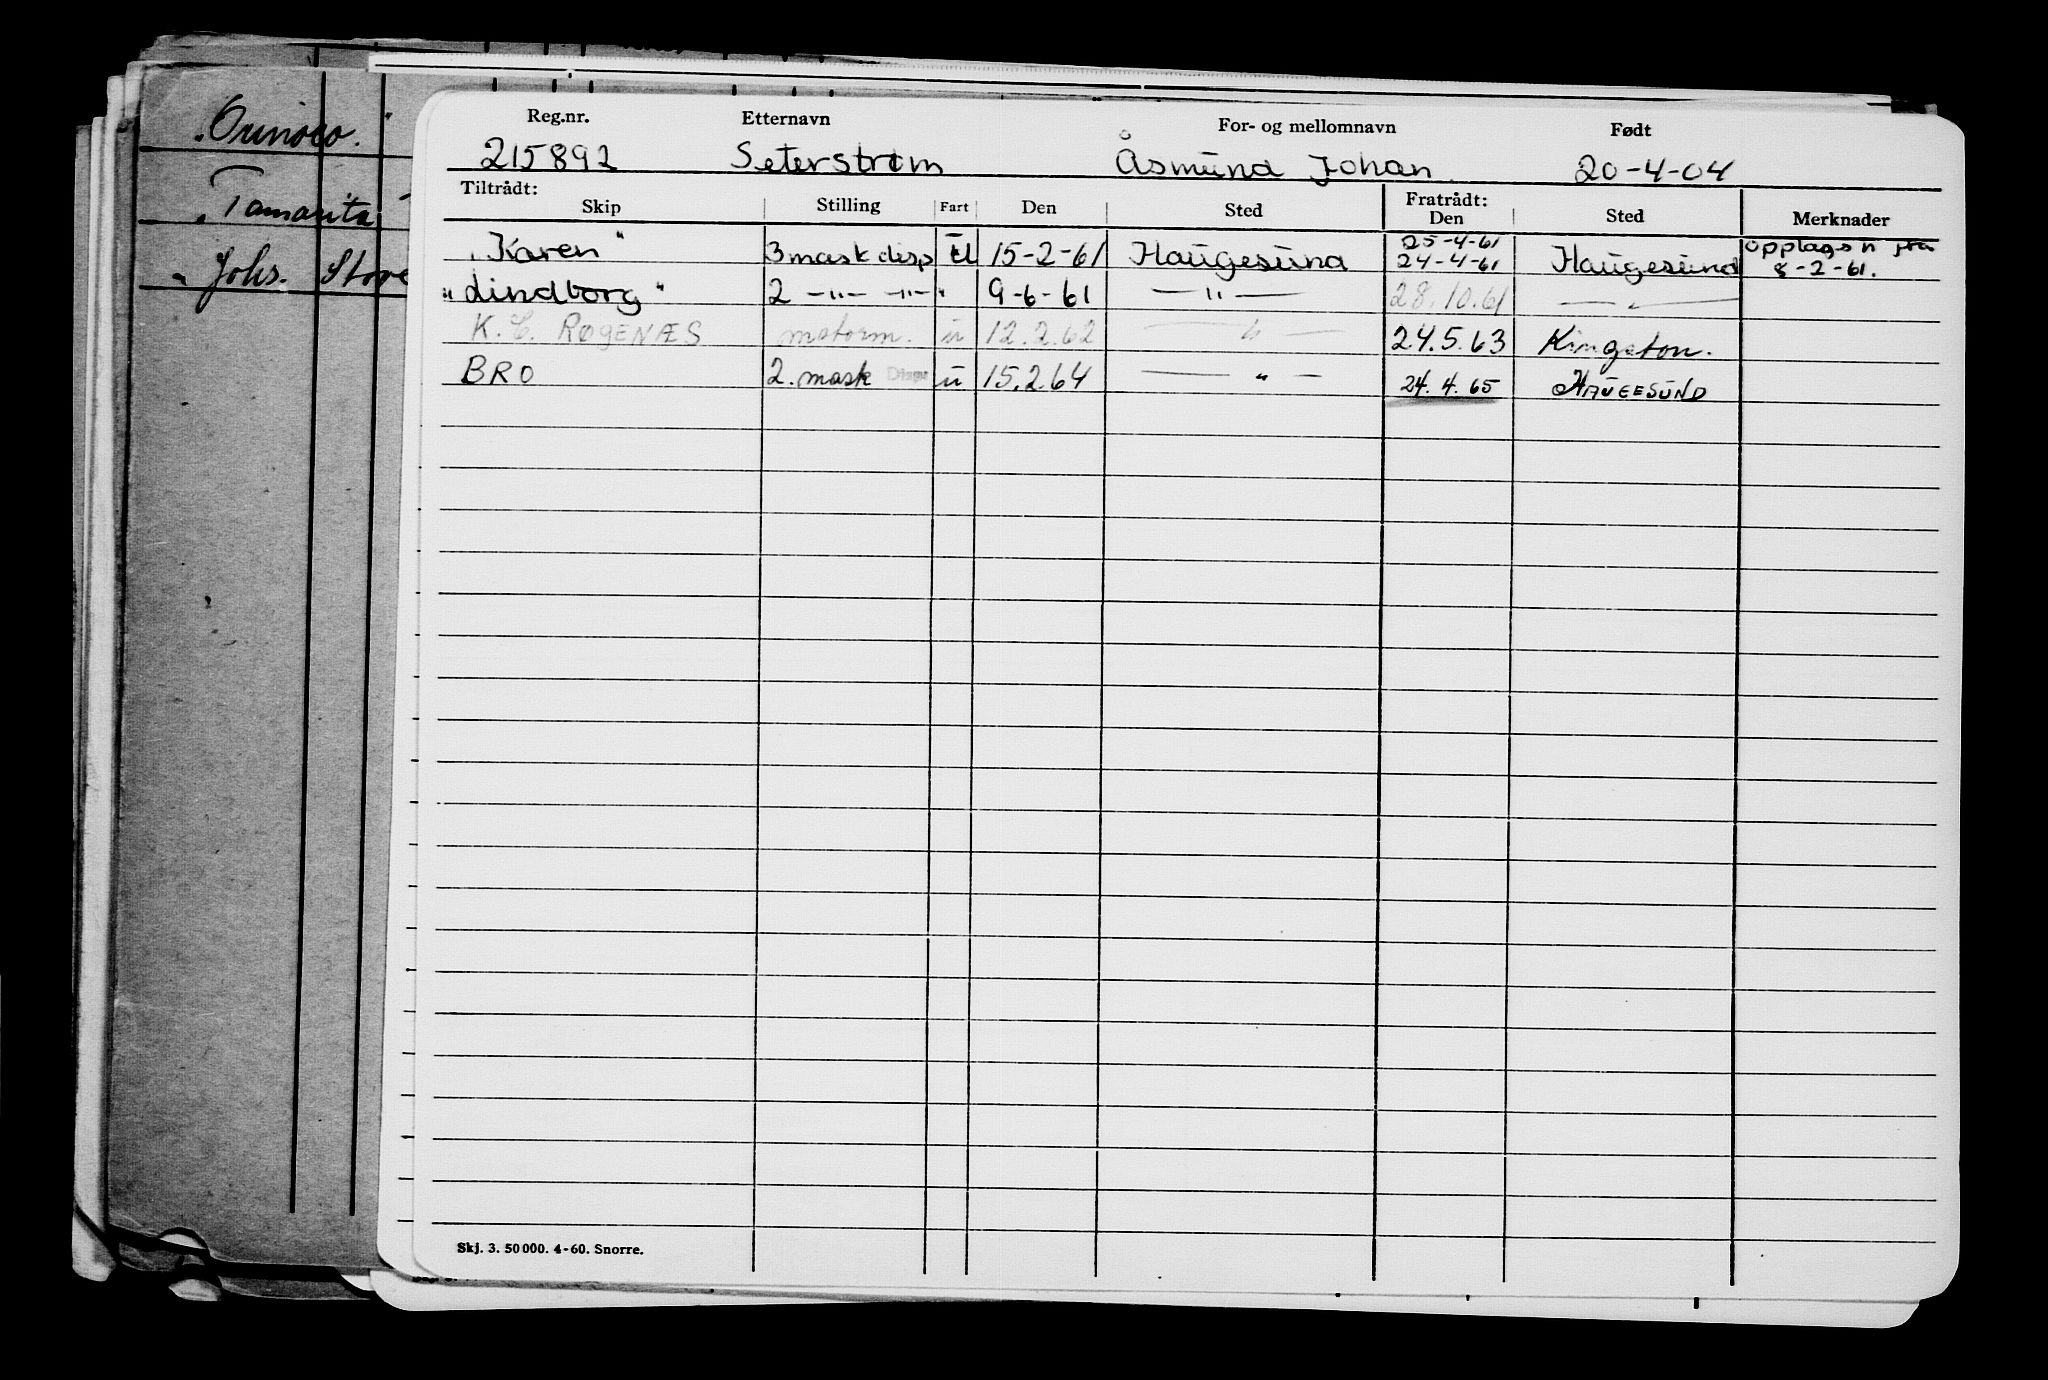 "Orinoco.
"Tamarita
" Johs. Stove
Reg.nr. Etternavn For- og mellomnavn Født
215892 Seterstrøm Åsmund Johan 20-4-04
Tiltrådt: Fratrådt:
Skip Stilling Fart Den Sted Den Sted Merknader
"Karen" 3 mask disp 15-2-61 Haugesund 25-4-61 24-4-61 Haugesund opplags n fra 8-2-61.
"Lindborg" 2 -"- -"- " 9-6-61 -"- 28.10.61 -"-
K. C. ROGENÆS motorm. u 12.2.62 -"- 24.5.63 Kingston.
BRO 2. mask Disp u 15.2.64 -"- 24.4.65 HAUGESUND
Skj. 3. 50000. 4-60. Snorre.